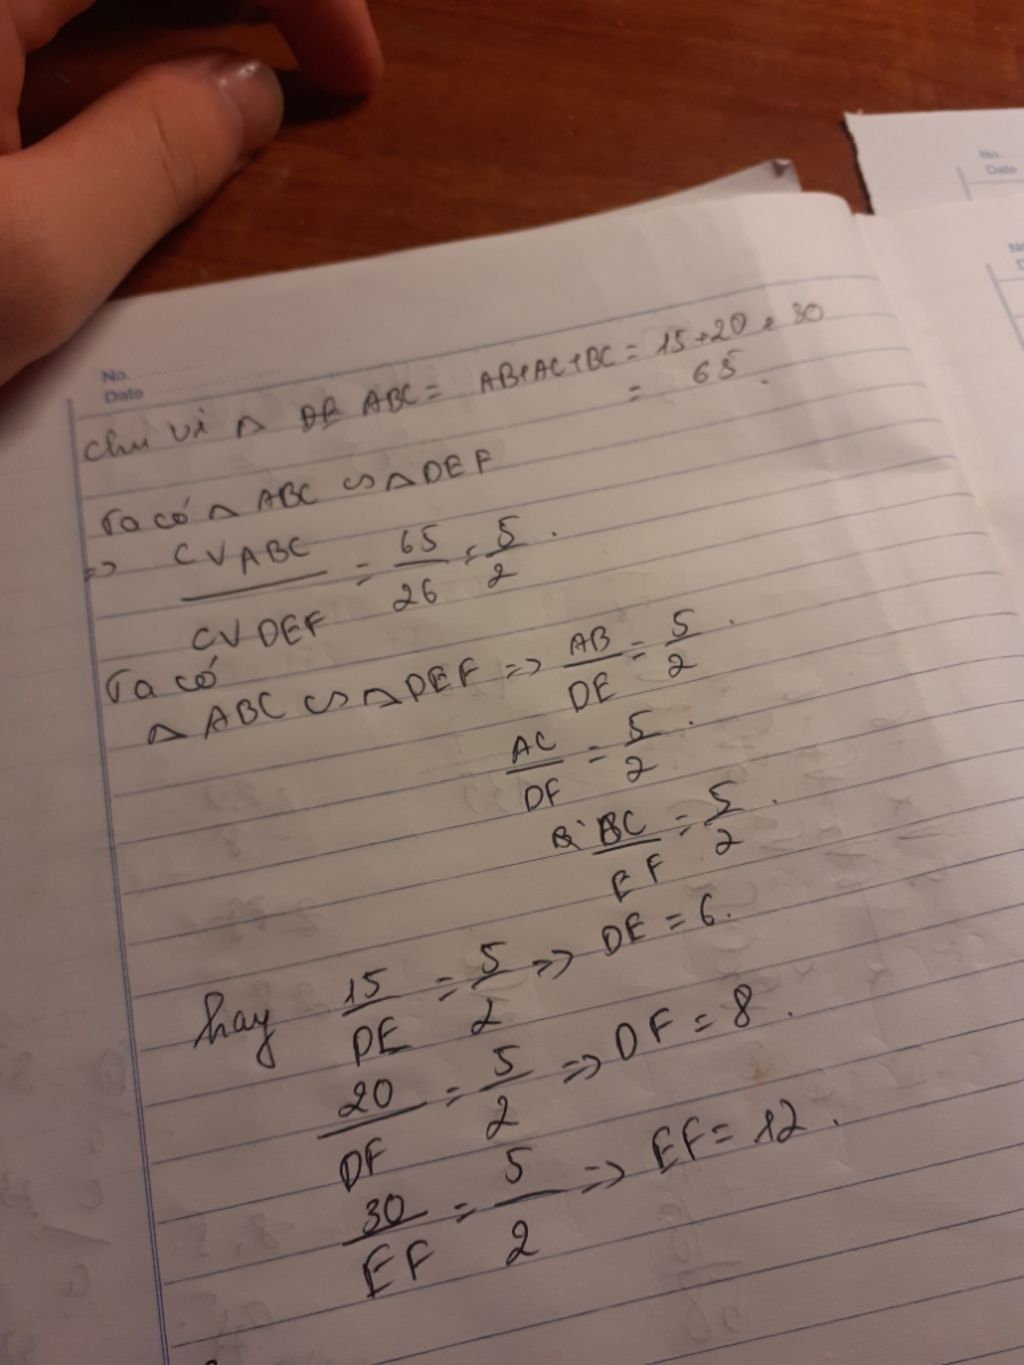 No.
Date
No.
Date
No.
Chu vi △ ABC = AB+AC+BC = 15+20+30
= 65.
Ta có △ ABC ∽ △ DEF
=> CVABC / CVDEF = 65/26 = 5/2.
Ta có
△ ABC ∽ △ DEF => AB/DE = 5/2.
AC/DF = 5/2.
BC/EF = 5/2.
hay 15/DE = 5/2 => DE = 6.
20/DF = 5/2 => DF = 8.
30/EF = 5/2 => EF = 12.